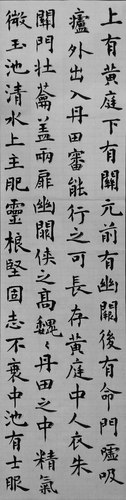 上有黃庭下有關元前有幽闕後有命門噓吸
廬外出入丹田審能行之可長存黃庭中人衣朱
關門壯籥蓋兩扉幽闕俠之高巍〻丹田之中精氣
微玉池清水上生肥靈根堅固志不衰中池有士服